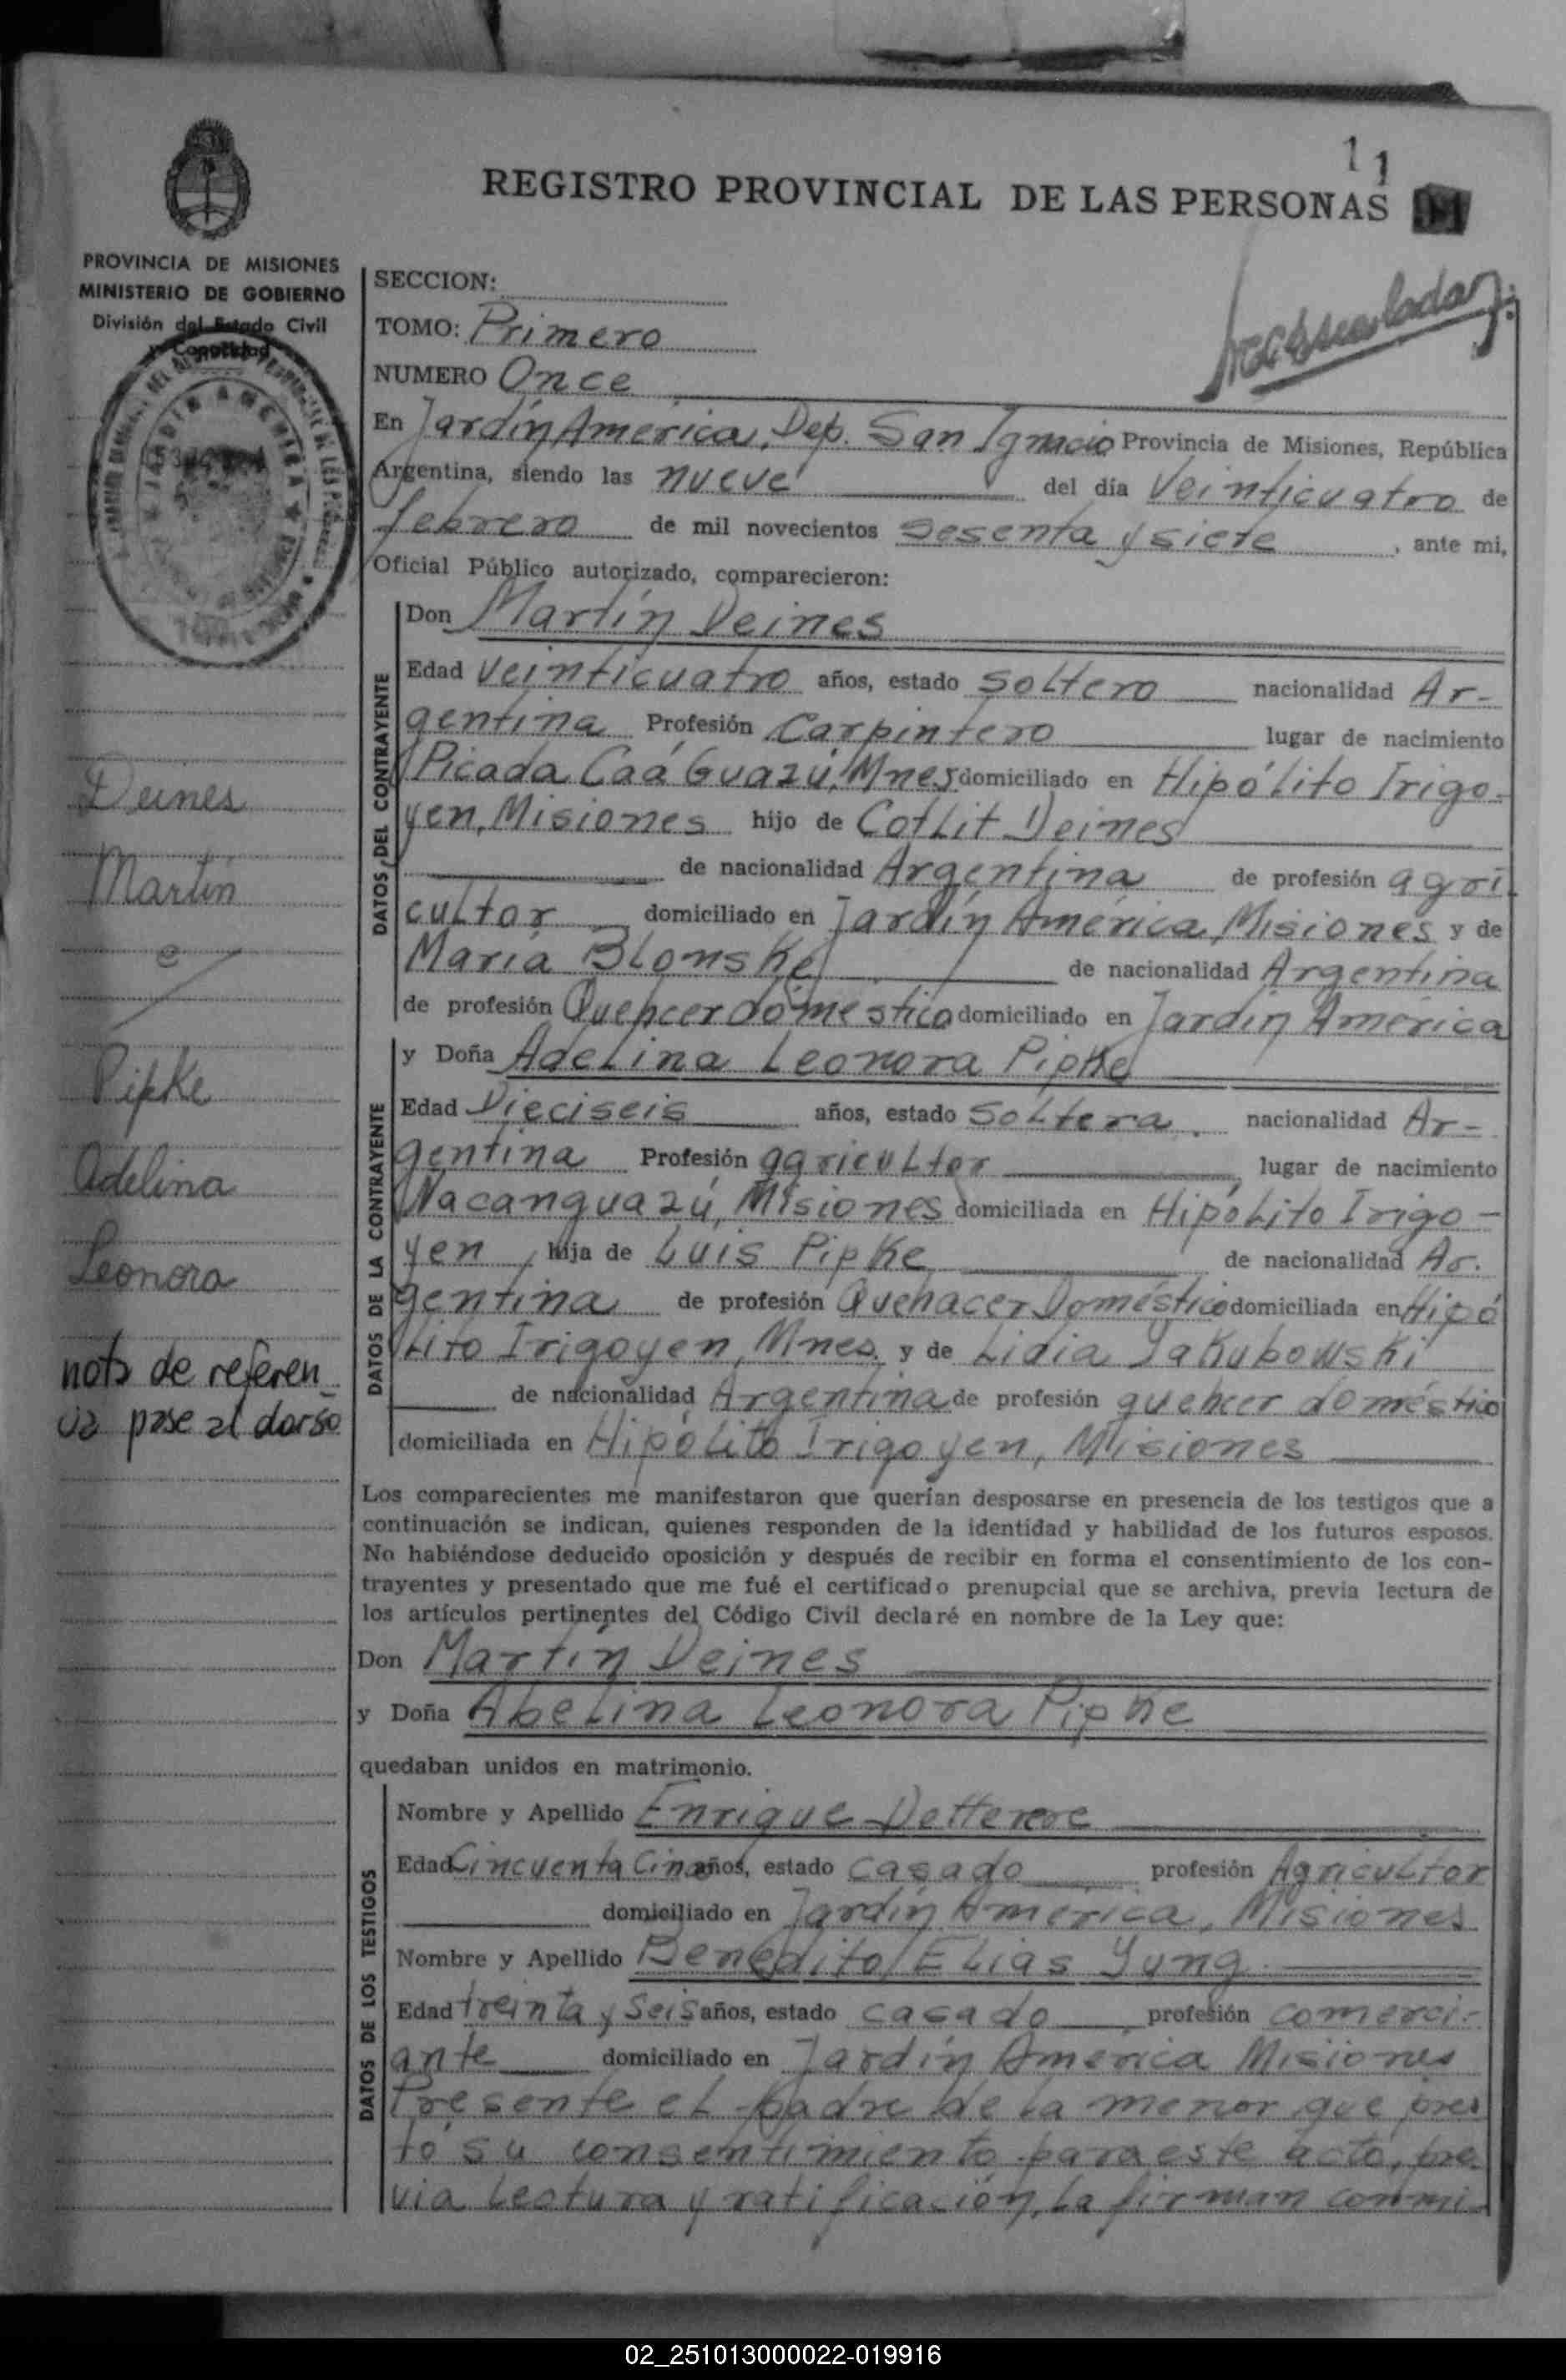 11
REGISTRO PROVINCIAL DE LAS PERSONAS
PROVINCIA DE MISIONES
MINISTERIO DE GOBIERNO
División del Estado Civil
y Capacidad
JARDIN AMERICA
SECCION:
TOMO: Primero
NUMERO Once
En Jardín América, Dep. San Ignacio Provincia de Misiones, República
Argentina, siendo las nueve del día Veinticuatro de
febrero de mil novecientos sesenta y siete, ante mi,
Oficial Público autorizado, comparecieron:
DATOS DEL CONTRAYENTE
Don Martín Deines
Edad veinticuatro años, estado soltero nacionalidad Ar-
gentina Profesión Carpintero lugar de nacimiento
Picada Caá Guazú, Mnes domiciliado en Hipólito Irigo-
yen, Misiones hijo de Cotlit Deines
de nacionalidad Argentina de profesión agri
cultor domiciliado en Jardín América, Misiones y de
María Blonske de nacionalidad Argentina
de profesión Quehcer doméstico domiciliado en Jardín América
DATOS DE LA CONTRAYENTE
y Doña Adelina Leonora Pipke
Edad Dieciseis años, estado soltera. nacionalidad Ar-
gentina Profesión agricultor lugar de nacimiento
Ñacanguazú, Misiones domiciliada en Hipólito Irigo-
yen, hija de Luis Pipke de nacionalidad Ar.
gentina de profesión Quehacer Doméstico domiciliada en Hipó
lito Irigoyen, Mnes. y de Lidia Yakubowski
de nacionalidad Argentina de profesión quehcer doméstico
domiciliada en Hipólito Irigoyen, Misiones
Deines
Martín
e
Pipke
Adelina
Leonora
nota de referen_
cia pase al dorso
Los comparecientes me manifestaron que querían desposarse en presencia de los testigos que a
continuación se indican, quienes responden de la identidad y habilidad de los futuros esposos.
No habiéndose deducido oposición y después de recibir en forma el consentimiento de los con-
trayentes y presentado que me fué el certificado prenupcial que se archiva, previa lectura de
los artículos pertinentes del Código Civil declaré en nombre de la Ley que:
Don Martín Deines
y Doña Abelina Leonora Pipke
quedaban unidos en matrimonio.
DATOS DE LOS TESTIGOS
Nombre y Apellido Enrique
Edad Cincuenta Cinco años, estado casado profesión Agricultor
domiciliado en Jardín América, Misiones
Nombre y Apellido Benedito Elias Yung
Edad treinta y seis años, estado casado profesión comerci-
ante domiciliado en Jardín América Misiones
Presente el padre de la menor que pres
tó su consentimiento para este acto, pre-
via lectura y ratificación, la firman conmi-
02_251013000022-019916